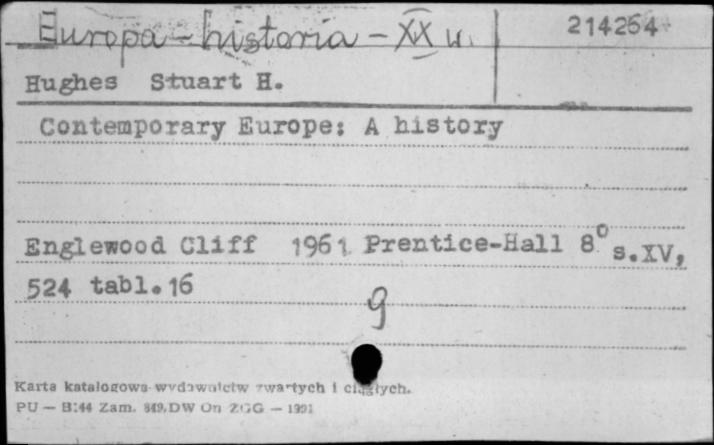 Europa - historia - XX w. 214264
Hughes Stuart H.
Contemporary Europe: A history
Englewood Cliff 1961 Prentice-Hall 8° s.XV,
524 tabl.16
g
Karta katalogowa wydawnictw zwartych i ciągłych.
PU — B:44 Zam. 849.DW On ZGG — 1991